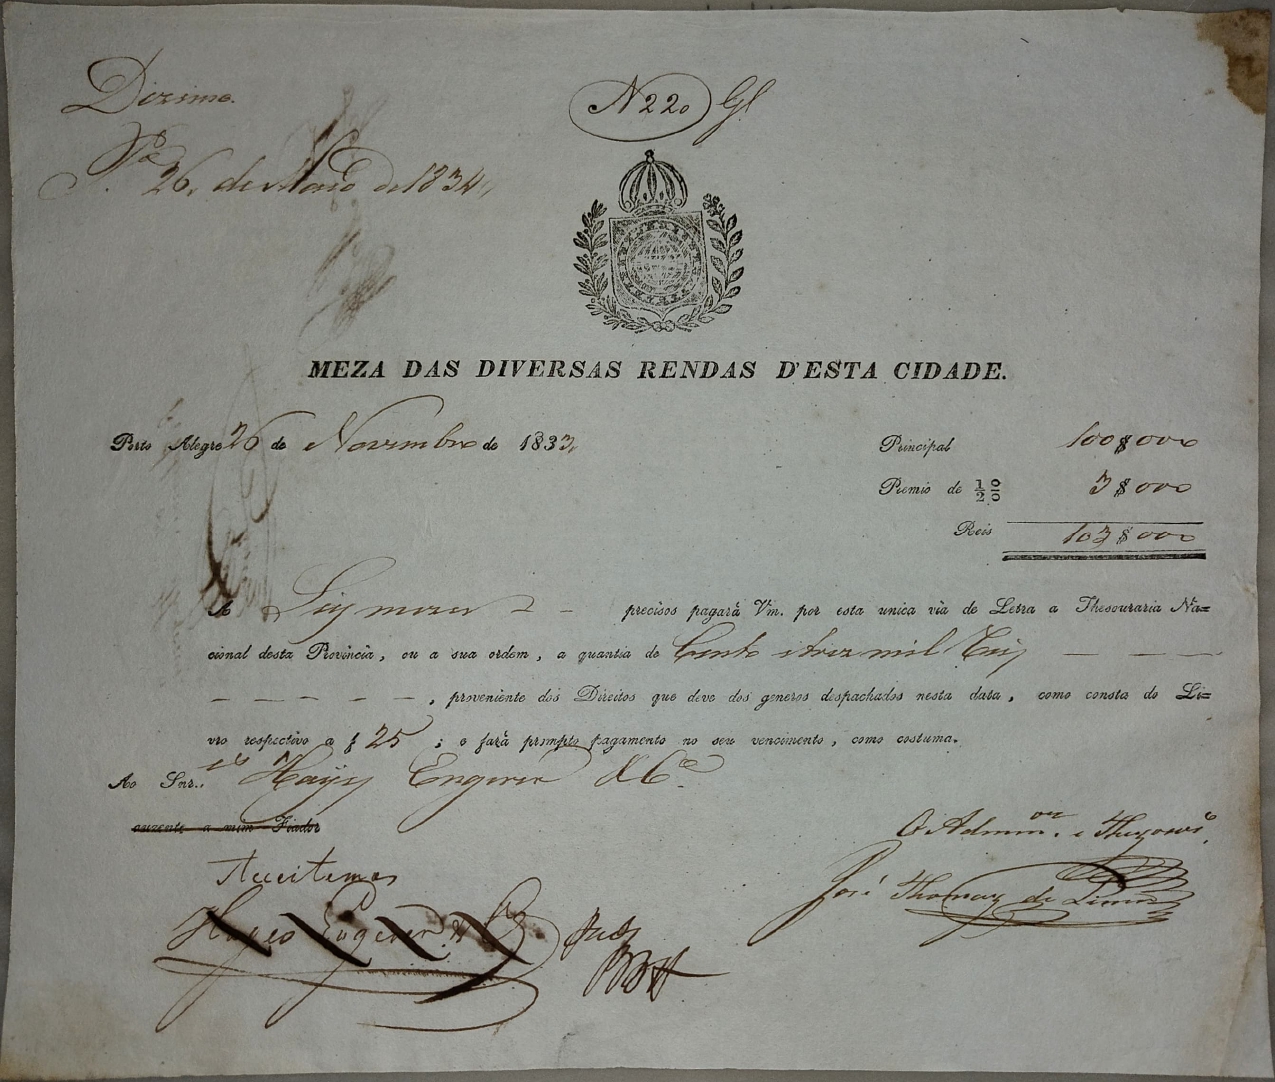 Dizima.
N 220
Pa. 26, de Maio de 1834,,
MEZA DAS DIVERSAS RENDAS D'ESTA CIDADE.
Porto Alegre 26 de Novembro de 1833,
Principal 100$000
Premio de 1/2 0/0 3$000
Reis 103$000
A Seis mezes precisos pagará Vm. por esta unica via de Letra a Thesouraria Na=
cional desta Provincia, ou a sua ordem, a quantia de Cento e trez mil Reis — — —
— — — — —, proveniente dos Direitos que deve dos generos despachados nesta data, como consta do Li=
vro respectivo a f 25; e fará prompto pagamento no seu vencimento, como costuma.
Ao Snr.es Hayes Engerer & Ca
auzente a mim Fiador
O Admin.or e Thezour.o
Acceitamos
José Thomaz de Lima
Hayes Engerer &